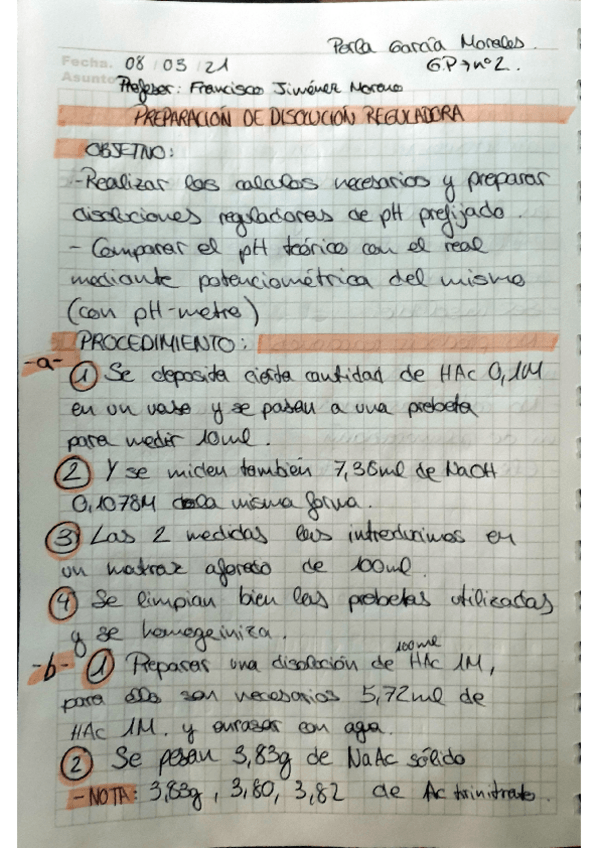 Perla García Morales.
Fecha. 08 / 03 / 21 G.P→nº2.
Asunto Profesor: Francisco Jiménez Moreno
PREPARACIÓN DE DISOLUCIÓN REGULADORA
OBJETIVO:
-Realizar los calculos necesarios y preparar
disoluciones reguladoras de pH prefijado.
- Comparar el pH teórico con el real
mediante potenciométrica del mismo
(con pH-metro)
PROCEDIMIENTO:
-a-
① Se deposita cierta cantidad de HAc 0,1M
en un vaso y se pasan a una probeta
para medir 10ml.
② Y se miden también 7,36ml de NaOH
0,1078M de la misma forma.
③ Las 2 medidas las introducimos en
un matraz aforado de 100ml.
④ Se limpian bien las probetas utilizadas
y se homogeiniza.
-b- ① Preparar una disolución de 100ml HAc 1M,
para ello son necesarios 5,72ml de
HAc 1M. y enrasar con agua.
② Se pesan 3,83g de NaAc sólido
-NOTA: 3,83g, 3,80, 3,82 de Ac trinitrato.